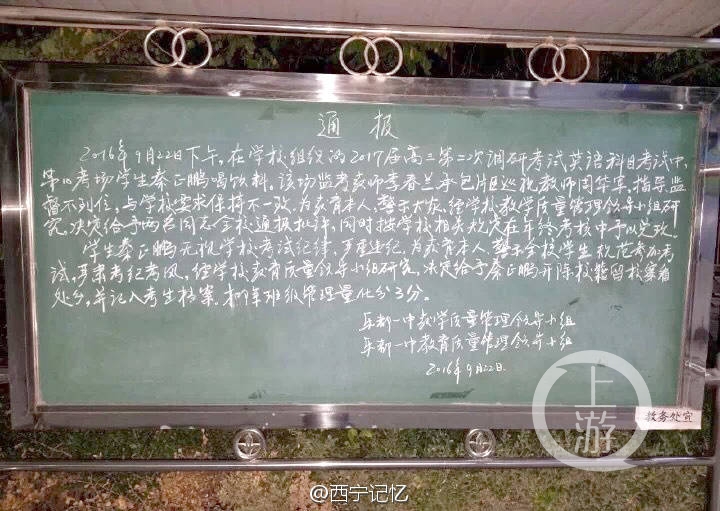 通报
2016年9月22日下午,在学校组织的2017届高三第二次调研考试英语科目考试中,
第十考场学生秦正鹏喝饮料。该场监考教师李春兰承包片区巡视教师周华军,指导监
督不到位,与学校要求保持不一致,为教育本人,警示大家,经学校教学质量管理领导小组研
究,决定给予两名同志全校通报批评,同时按学校相关规定在年终考核中予以兑改。
学生秦正鹏无视学校考试纪律,严重违纪,为教育本人,警示全校学生规范参加考
试,严肃考纪考风,经学校教育质量领导小组研究,决定给予秦正鹏开除校籍留校察看
处分,并记入考生档案,扣年班级管理量化分3分。
乐都一中教学质量管理领导小组
乐都一中教育质量管理领导小组
2016年9月22日.
教务处宣
上游
@西宁记忆